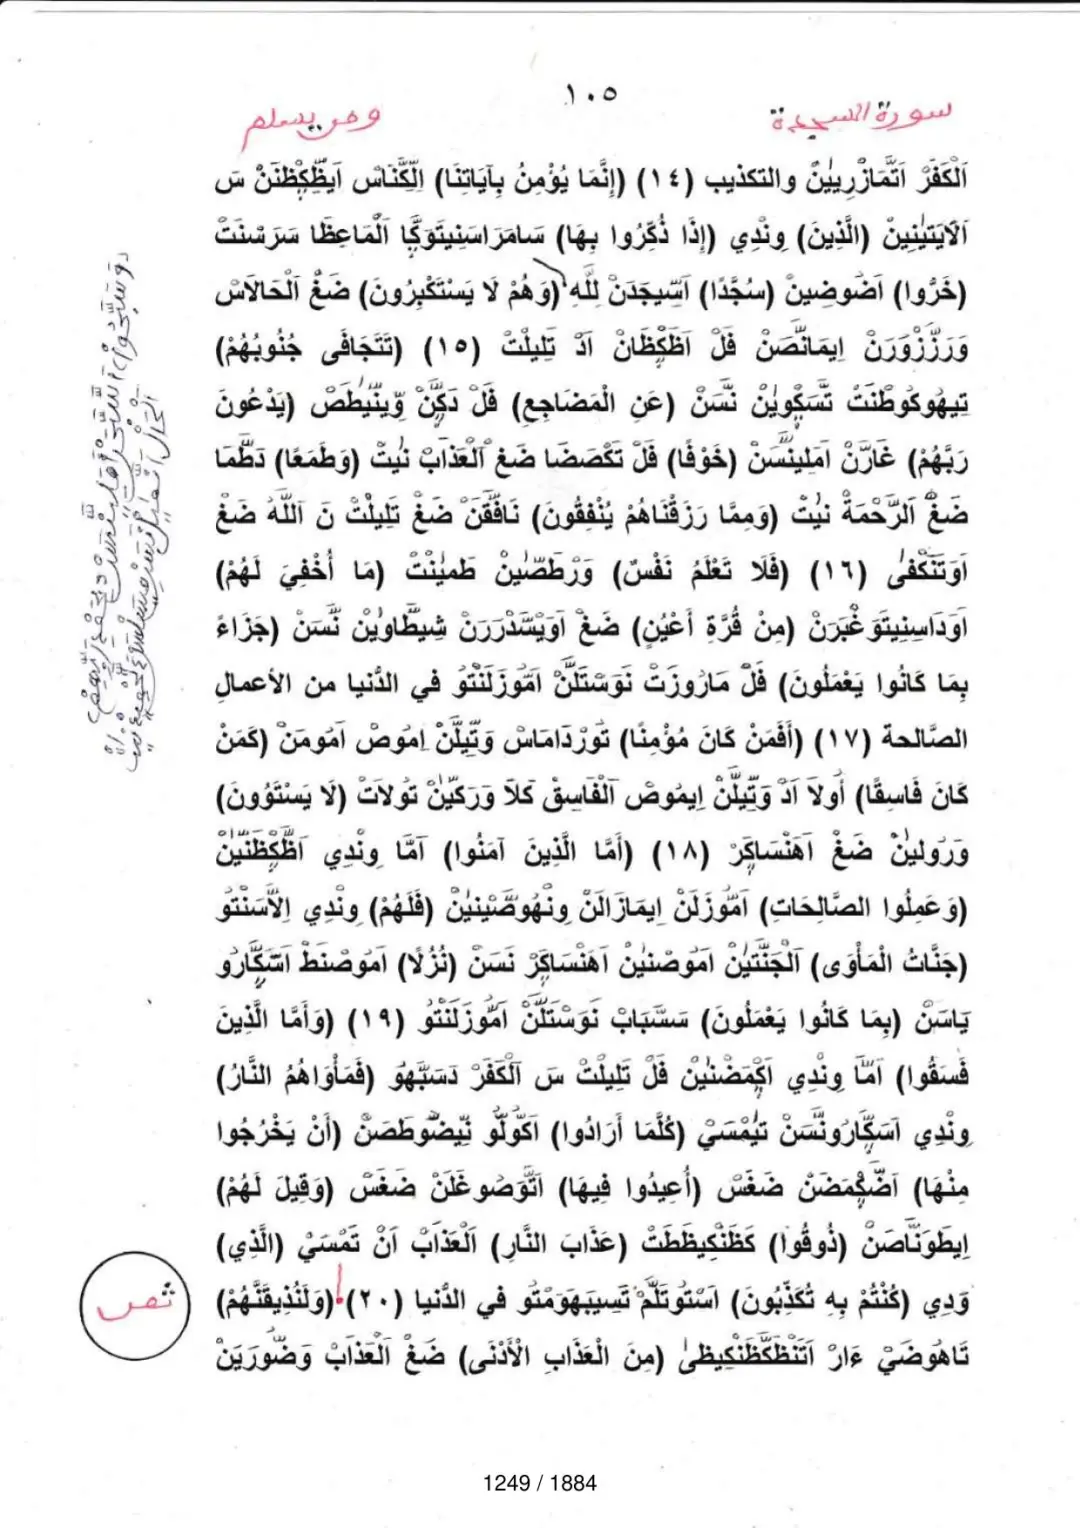 ١٠٥
سورة السجدة
ومن يسلم
اَلْكَفَرْ اَتَّمَازْرِييٰنْ والتكذيب (١٤) (إِنَّمَا يُؤْمِنُ بِآيَاتِنَا) اِلْكَّنَاسْ اَيظَّكِظَنَنْ سَ
اَلَايَتيٰنِينْ (الَّذِينَ) وِنْدِي (إِذَا ذُكِّرُوا بِهَا) سَامَرَاسَنِيتَوَكَّا اَلْمَاعِظَا سَرَسْنَتْ
(خَرُّوا) اَضُوضِينْ (سُجَّدًا) اَسِّيجَدَنْ لِلَّهِ (وَهُمْ لَا يَسْتَكْبِرُونَ) ضَغْ اَلْحَالَاسْ
وَرَزْزُورَنْ اِيمَانَّصَنْ فَلْ اَظَكِظَانْ اَدْ تَلِيلْتْ (١٥) (تَتَجَافَى جُنُوبُهُمْ)
تِيهُوكُوطْنَتْ تَسَّكِويٰنْ نَسَّنْ (عَنِ الْمَضَاجِعِ) فَلْ دَكِنّْ وِّينْيطَصْ (يَدْعُونَ
رَبَّهُمْ) غَارَّنْ اَمَلِينَسَّنْ (خَوْفًا) فَلْ تَكْصَضَا ضَغْ اَلْعَذَابْ نيٰتْ (وَطَمَعًا) دَطَّمَا
ضَغْ اَلرَّحْمَةْ نيٰتْ (وَمِمَّا رَزَقْنَاهُمْ يُنْفِقُونَ) نَافَّقَنْ ضَغْ تَلِيلْتْ نَ اَللَّهْ ضَغْ
اَوَتَنَّكْفَىٰ (١٦) (فَلَا تَعْلَمُ نَفْسٌ) وَرْطَصّٰينْ طَميٰنْتْ (مَا أُخْفِيَ لَهُمْ)
اَوَدَاسِنِيتَوَغْبَرَنْ (مِنْ قُرَّةِ أَعْيُنٍ) ضَغْ اَويَسَّدْرَرَنْ شِيطَّاوِينْ نَّسَنْ (جَزَاءً
بِمَا كَانُوا يَعْمَلُونَ) فَلْ مَارُوزَتْ نَوَسْتَلَّنْ اَمُّوزَلَنْتُو في الدُّنيا من الأعمال
الصَّالحة (١٧) (أَفَمَنْ كَانَ مُؤْمِنًا) تَورْدَامَاسْ وَتِّيلَنْ اِمُوصْ اَمُومَنْ (كَمَنْ
كَانَ فَاسِقًا) أَولَا اَدْ وَتِّيلَنْ اِيمُوصْ اَلْفَاسِقْ كَلَا وَرَكِيٰنْ تَوَلَاتْ (لَا يَسْتَوُونَ)
وَرُوليٰنْ ضَغْ اَهَنْسَاكِرْ (١٨) (أَمَّا الَّذِينَ آمَنُوا) اَمَّا وِنْدِي اَظَّكِظَنّيٰنْ
(وَعَمِلُوا الصَّالِحَاتِ) اَمُّوزَلَنْ اِيمَازَالَنْ وِنْهُوصَّينيٰنْ (فَلَهُمْ) وِنْدِي اِلَّاسَنْتُو
(جَنَّاتُ الْمَأْوَى) اَلْجَنَّتيٰنْ اَمُوصْنيٰنْ اَهَنْسَاكِرْ نَسَنْ (نُزُلًا) اَمُوصْنَطْ اَسَكَّارُو
يَاسَنْ (بِمَا كَانُوا يَعْمَلُونَ) سَسَّبَابْ نَوَسْتَلَّنْ اَمُّوزَلَنْتُو (١٩) (وَأَمَّا الَّذِينَ
فَسَقُوا) اَمَّا وِنْدِي اَكْمَضْنيٰنْ فَلْ تَلِيلْتْ سَ اَلْكَفَرْ دَسَبَّهَوْ (فَمَأْوَاهُمُ النَّارُ)
وِنْدِي اَسَكَّارُونَسَّنْ تيٰمْسَيْ (كُلَّمَا أَرَادُوا) اَكُولُّو نِّيضُوطَصَنْ (أَنْ يَخْرُجُوا
مِنْهَا) اَضَّكْمَضَنْ ضَغَسْ (أُعِيدُوا فِيهَا) اَتَّوَصُوغَلَنْ ضَغَسْ (وَقِيلَ لَهُمْ)
اِيطَونَاّصَنْ (ذُوقُوا) كَظَنْكِيظَطَتْ (عَذَابَ النَّارِ) اَلْعَذَابْ اَنْ تَمْسَيْ (الَّذِي)
وَدِي (كُنْتُمْ بِهِ تُكَذِّبُونَ) اَسْتُوتَلَّمْ تَسِيبَهَومْتُو في الدُّنيا (٢٠) (وَلَنُذِيقَنَّهُمْ)
تَاهُوضَيْ ءَارْ اَتَنْظَكَّظَنْكِيظَىٰ (مِنَ الْعَذَابِ الْأَدْنَى) ضَغْ اَلْعَذَابْ وَضُّورَيَنْ
ثمن
1249 / 1884